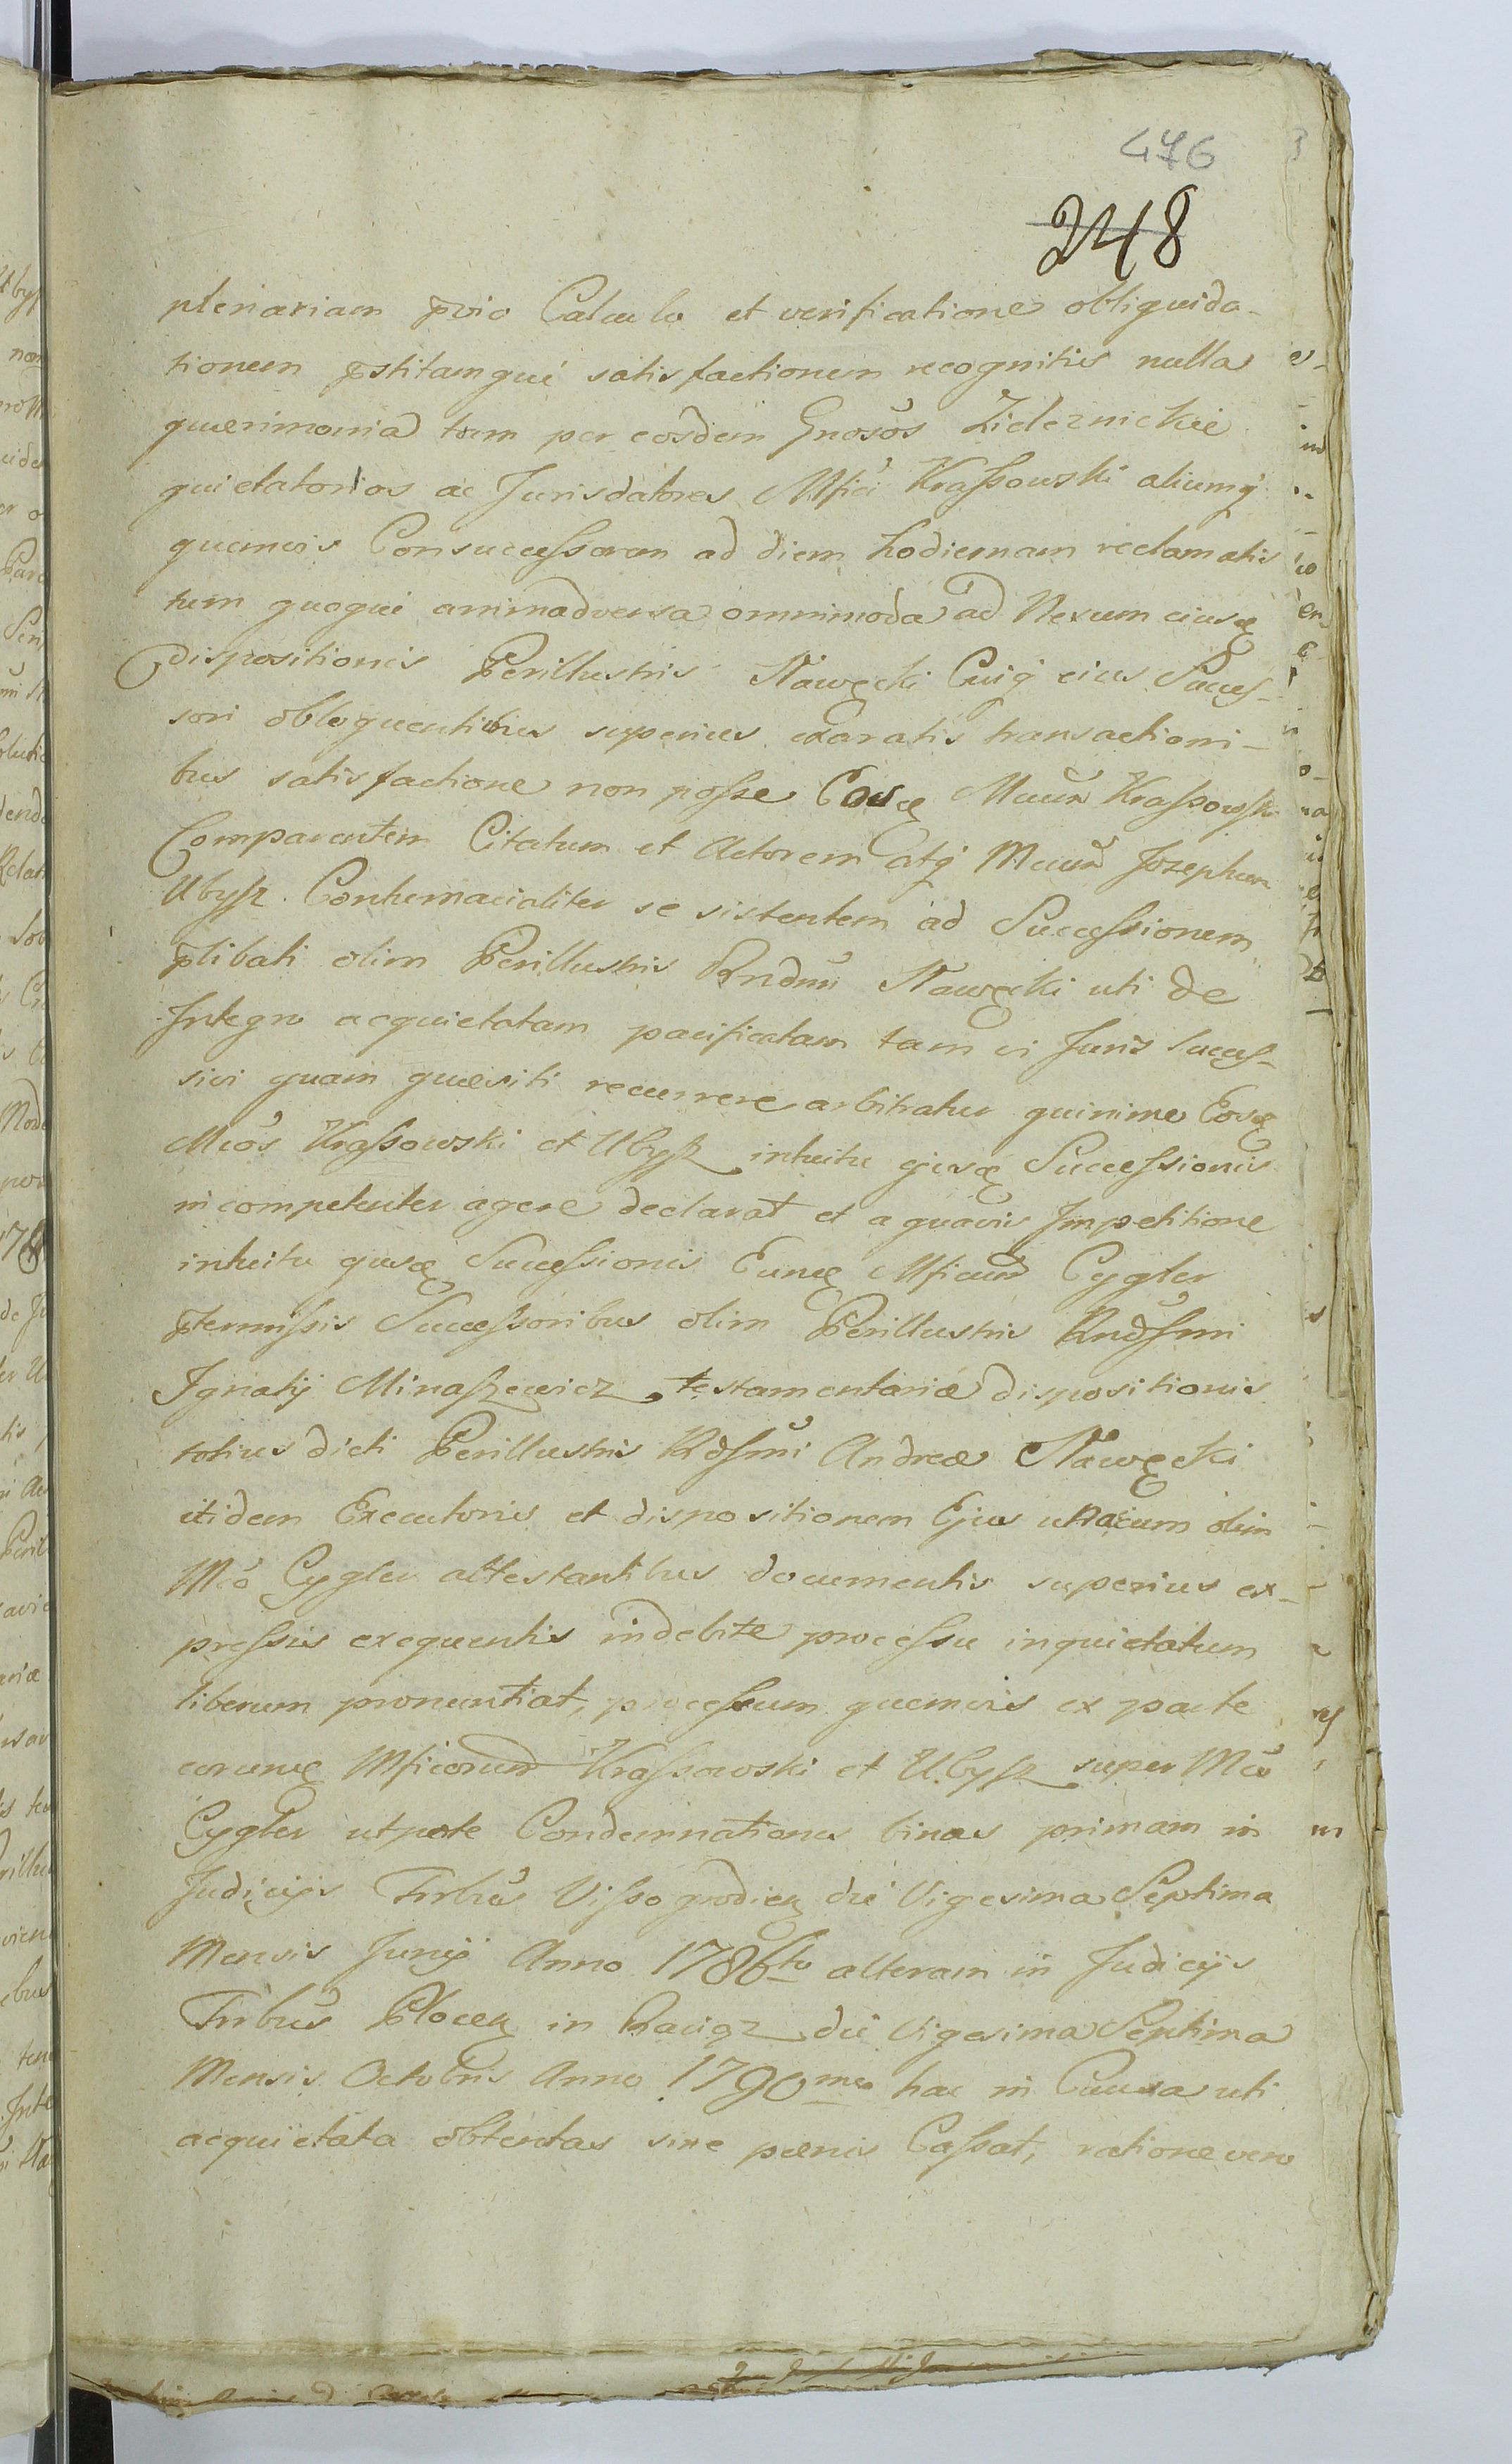 476
248
plenariam pvio Calculo et verificatione obliquida-
tionem pstitamque satisfactionem recognitis nulla
querimonia tam per eosdem Gnosos Zieleznickie
quietatorios ac Jurisdatores Mfici Kraſsowski aliumq
quemvis Consucceſsorem ad diem hodiernam reclamatis
tum quoque animadversa omnimoda ad Nexum eiusę
dispositionis Perillustris Nawęcki Cuiq eius Succeſ-
sori obloquentibus superius exaratis transactioni-
bus satisfactione non poſse Eosę Mcum Kraſsowski
Comparentem Citatum et Actorem atq Mcum Josephum
Ubysz. Contumacialiter se sistentem ad Succeſsionem
plibati olim Perillustris Rndmi Nawęcki uti de
Integro acquietatam pacificatam tam vi Juris Succeſ-
sivi quam quesiti recurrere arbitratur quinimo Eosę
Mcos Kraſsowski et Ubysz intuitu ejusę Succeſsionis
incompetenter agere declarat et a quavis Impetitione
intuitu ejusę Succeſsionis Eumę Mficum Cygler
ptermiſsis Succeſsoribus olim Perillustris Rndſmi
Ignatij Minaszewicz testamentariæ dispositionis
totius dicti Perillustris Rdſmi Andreæ Nawęcki
itidem Executoris et dispositionem Ejus unacum olim
Mco Cygler attestantibus documentis superius ex-
preſsis exequentis indebite processu inquietatum
liberum pronuntiat, proceſsum quemvis ex parte
eorumę Mficorum Kraſsowski et Ubysz super Mco
Cygler utpote Condemnationes binas primam in
Judicijs Trbus Viſsogrodien die Vigesima Septima
Mensis Junij Anno 1786to alteram in Judicijs
Tribus Plocen in Raciąz die Vigesima Septima
Mensis Octobris Anno 1790mo hac in Causa uti
acquietata obtentas sine pænis Caſsat, ratione vero